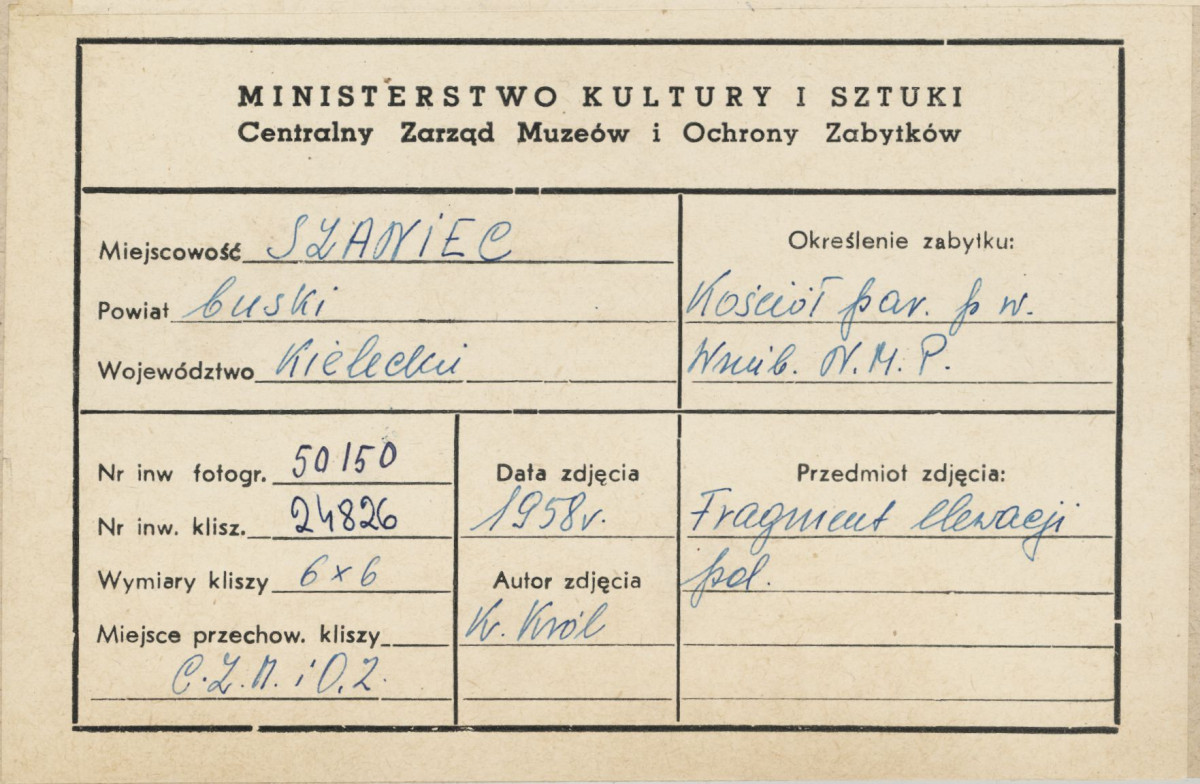 MINISTERSTWO KULTURY I SZTUKI
Centralny Zarząd Muzeów i Ochrony Zabytków
Miejscowość SZANIEC
Powiat buski
Województwo Kielecki
Określenie zabytku:
Kościół par. p w.
Wnieb. N. M. P.
Nr inw fotogr. 50150
Nr inw. klisz. 24826
Wymiary kliszy 6 x 6
Miejsce przechow. kliszy
C.Z.M. i O.Z.
Data zdjęcia
1958 r.
Autor zdjęcia
Kr. Król
Przedmiot zdjęcia:
Fragment elewacji
pd.